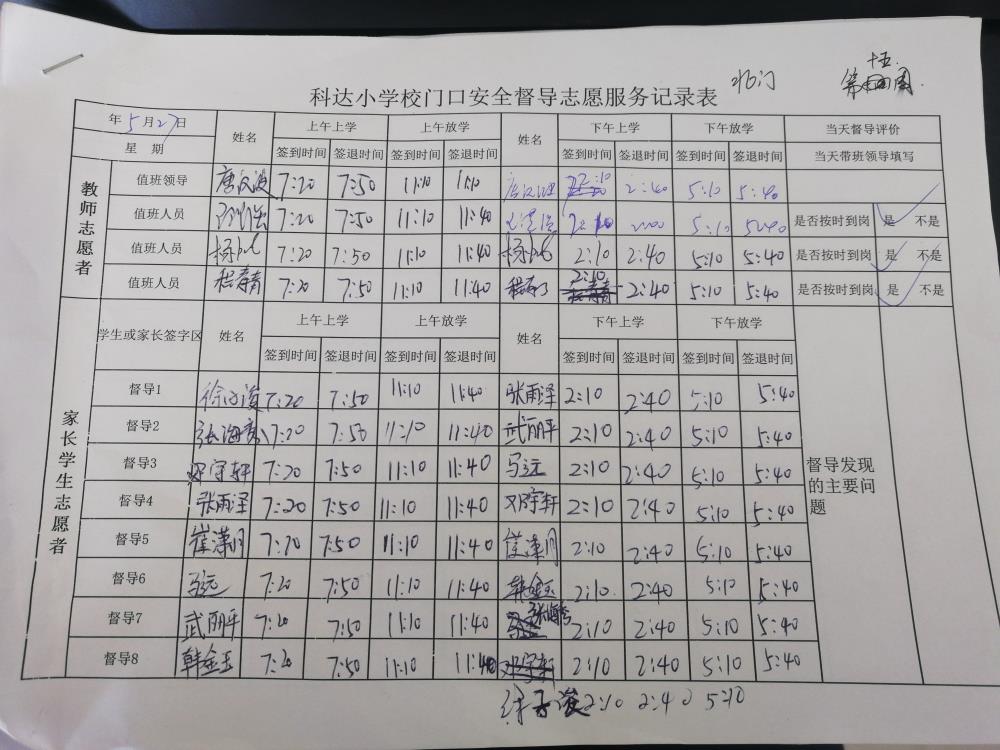 北门
十五
第 周
科达小学校门口安全督导志愿服务记录表
年5月27日 姓名 上午上学 上午放学 姓名 下午上学 下午放学 当天督导评价
星 期 签到时间 签退时间 签到时间 签退时间 签到时间 签退时间 签到时间 签退时间 当天带班领导填写
教师志愿者
值班领导 7:20 7:50 11:10 11:10 2:10 2:40 5:10 5:40
值班人员 7:20 7:50 11:10 11:40 5:10 5:40 是否按时到岗 是 不是
值班人员 7:20 7:50 11:10 11:40 2:10 2:40 5:10 5:40 是否按时到岗 是 不是
值班人员 7:20 7:50 11:10 11:40 2:10 2:40 5:10 5:40 是否按时到岗 是 不是
家长学生志愿者
学生或家长签字区 姓名 上午上学 上午放学 姓名 下午上学 下午放学
签到时间 签退时间 签到时间 签退时间 签到时间 签退时间 签到时间 签退时间
督导1 7:20 7:50 11:10 11:40 张雨泽 2:10 2:40 5:10 5:40
督导2 7:20 7:50 11:10 11:40 武丽平 2:10 2:40 5:10 5:40
督导3 邓宇轩 7:20 7:50 11:10 11:40 马远 2:10 2:40 5:10 5:40
督导发现的主要问题
督导4 张雨泽 7:20 7:50 11:10 11:40 邓宇轩 2:10 2:40 5:10 5:40
督导5 崔潇月 7:20 7:50 11:10 11:40 崔潇月 2:10 2:40 5:10 5:40
督导6 马远 7:20 7:50 11:10 11:40 韩金玉 2:10 2:40 5:10 5:40
督导7 武丽平 7:20 7:50 11:10 11:40 2:10 2:40 5:10 5:40
督导8 韩金玉 7:20 7:50 11:10 11:40 2:10 2:40 5:10 5:40
2:10 2:40 5:10